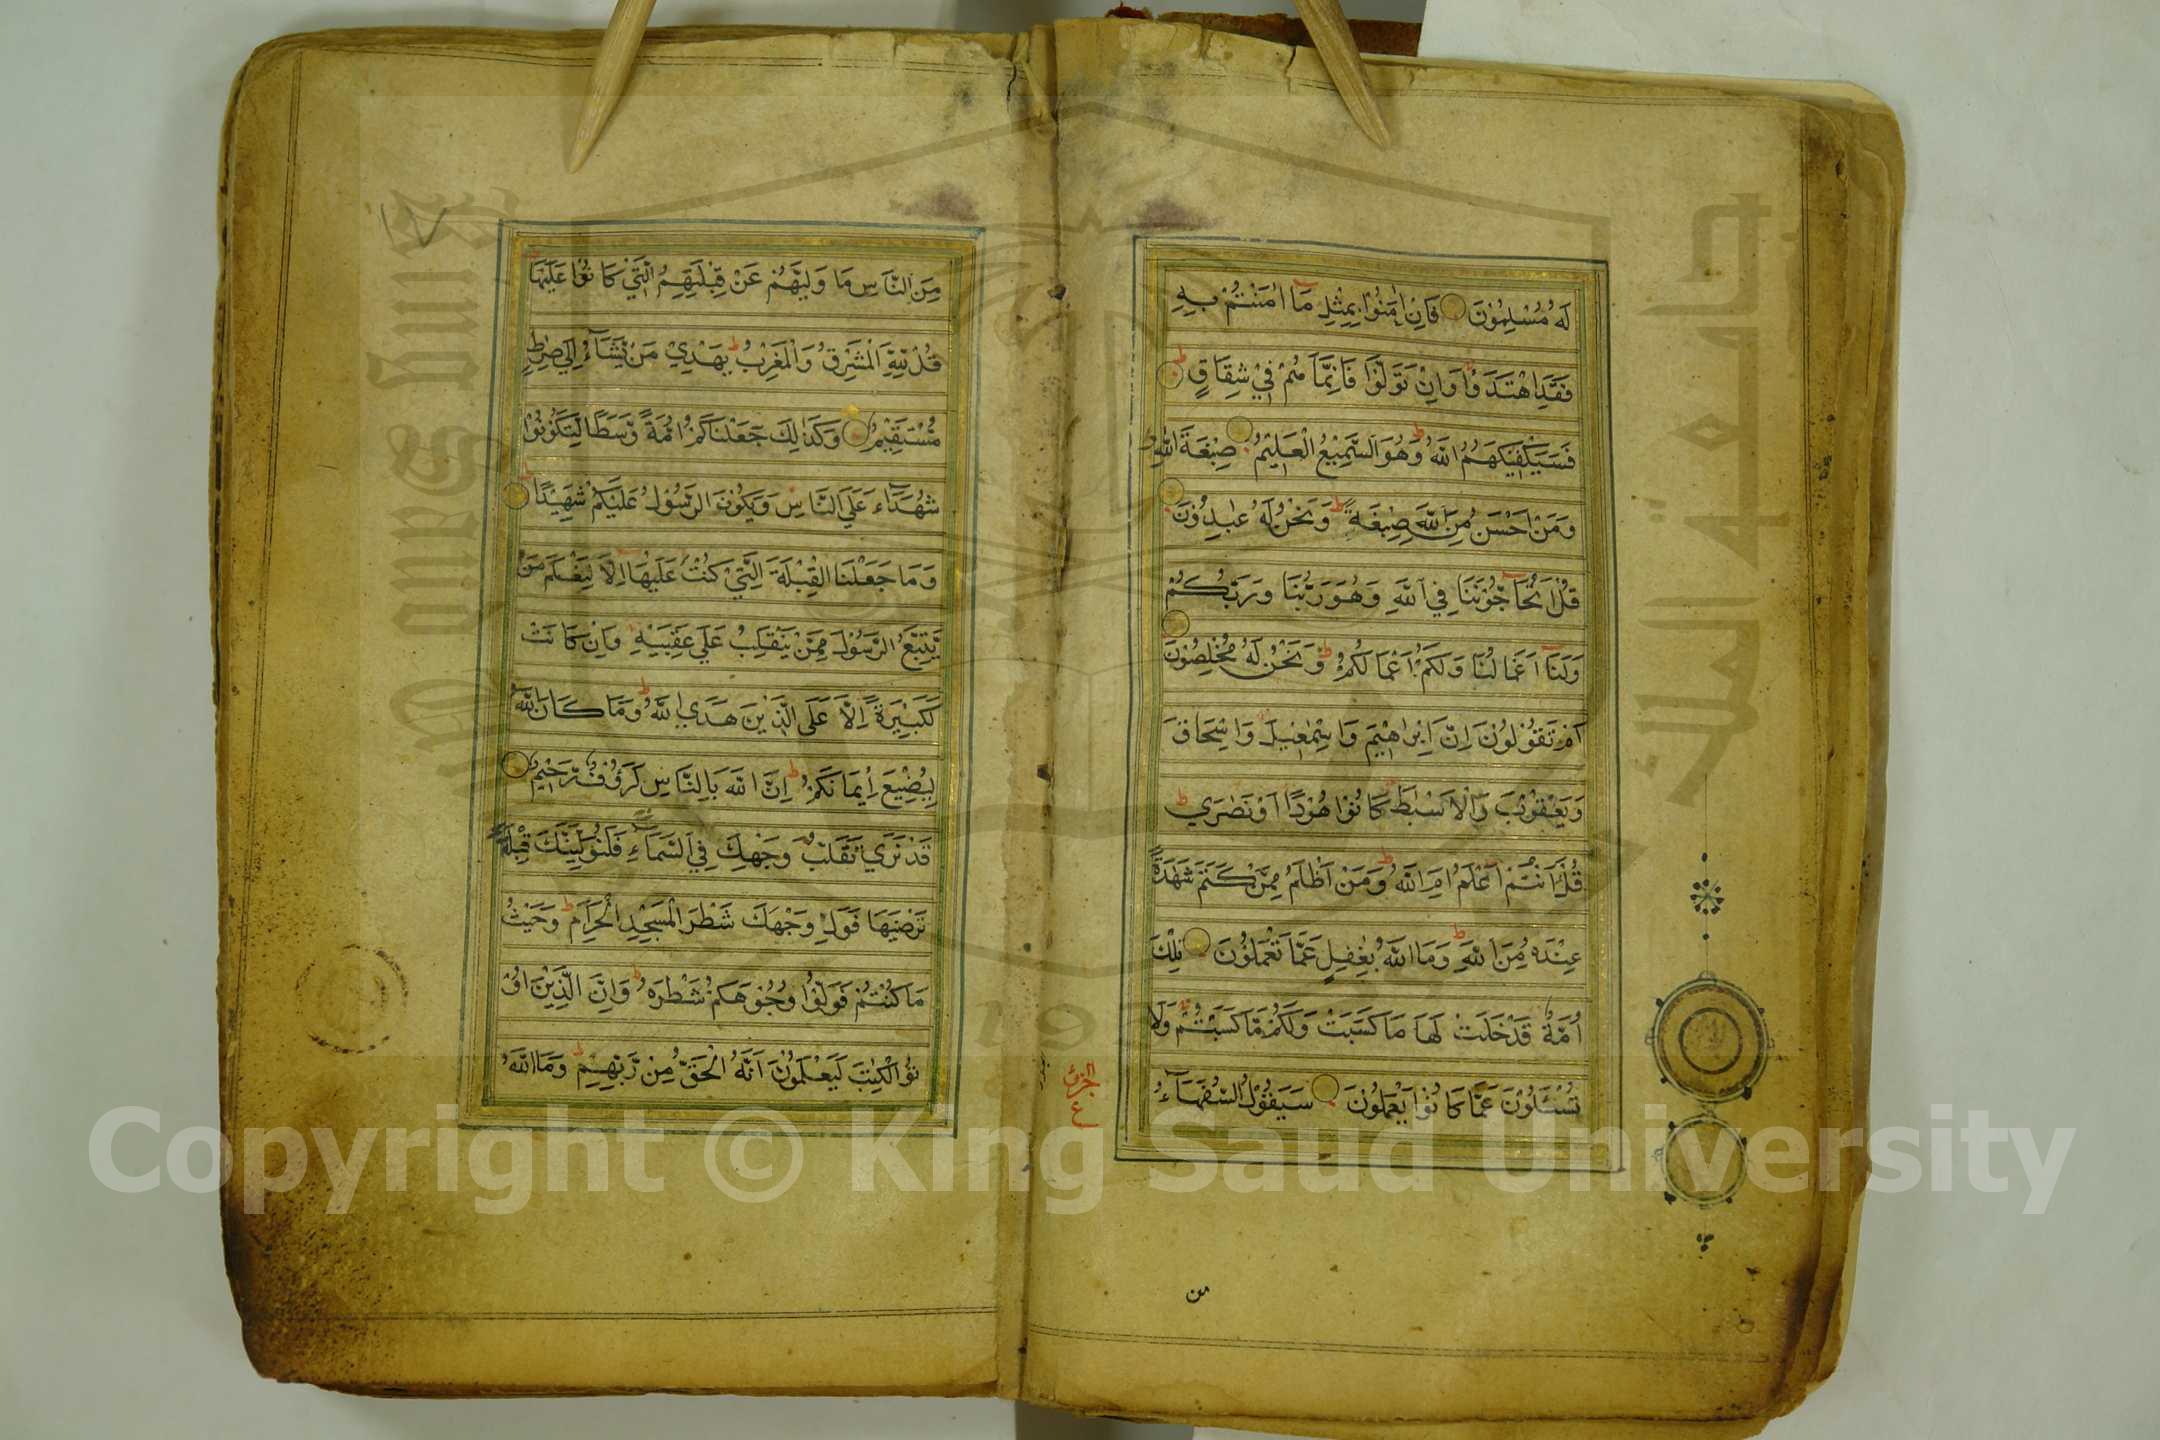 لَهُ مُسْلِمُوْنَ فَاِنْ اٰمَنُوْا بِمِثْلِ مَآ اٰمَنْتُمْ بِهٖ
فَقَدِ اهْتَدَوْا وَاِنْ تَوَلَّوْا فَاِنَّمَا هُمْ فِيْ شِقَاقٍ
فَسَيَكْفِيْكَهُمُ اللّٰهُ وَهُوَ السَّمِيْعُ الْعَلِيْمُ صِبْغَةَ اللّٰهِ
وَمَنْ اَحْسَنُ مِنَ اللّٰهِ صِبْغَةً وَنَحْنُ لَهُ عٰبِدُوْنَ
قُلْ اَتُحَآجُّوْنَنَا فِي اللّٰهِ وَهُوَ رَبُّنَا وَرَبُّكُمْ
وَلَنَآ اَعْمَالُنَا وَلَكُمْ اَعْمَالُكُمْ وَنَحْنُ لَهُ مُخْلِصُوْنَ
اَمْ تَقُوْلُوْنَ اِنَّ اِبْرٰهٖيْمَ وَاِسْمٰعِيْلَ وَاِسْحَاقَ
وَيَعْقُوْبَ وَالْاَسْبَاطَ كَانُوْا هُوْدًا اَوْ نَصٰرٰي
قُلْ ءَاَنْتُمْ اَعْلَمُ اَمِ اللّٰهُ وَمَنْ اَظْلَمُ مِمَّنْ كَتَمَ شَهٰدَةً
عِنْدَهُ مِنَ اللّٰهِ وَمَا اللّٰهُ بِغٰفِلٍ عَمَّا تَعْمَلُوْنَ تِلْكَ
اُمَّةٌ قَدْ خَلَتْ لَهَا مَا كَسَبَتْ وَلَكُمْ مَّا كَسَبْتُمْ وَلَا
تُسْئَلُوْنَ عَمَّا كَانُوْا يَعْمَلُوْنَ سَيَقُوْلُ السُّفَهَآءُ
الجزء
من
مِنَ النَّاسِ مَا وَلّٰيهُمْ عَنْ قِبْلَتِهِمُ الَّتِيْ كَانُوْا عَلَيْهَا
قُلْ لِلّٰهِ الْمَشْرِقُ وَالْمَغْرِبُ يَهْدِيْ مَنْ يَّشَآءُ اِلٰي صِرٰطٍ
مُّسْتَقِيْمٍ وَكَذٰلِكَ جَعَلْنَاكُمْ اُمَّةً وَّسَطًا لِّتَكُوْنُوْا
شُهَدَآءَ عَلَي النَّاسِ وَيَكُوْنَ الرَّسُوْلُ عَلَيْكُمْ شَهِيْدًا
وَمَا جَعَلْنَا الْقِبْلَةَ الَّتِيْ كُنْتَ عَلَيْهَا اِلَّا لِنَعْلَمَ مَنْ
يَّتَّبِعُ الرَّسُوْلَ مِمَّنْ يَّنْقَلِبُ عَلٰي عَقِبَيْهِ وَاِنْ كَانَتْ
لَكَبِيْرَةً اِلَّا عَلَي الَّذِيْنَ هَدَي اللّٰهُ وَمَا كَانَ اللّٰهُ
لِيُضِيْعَ اِيْمَانَكُمْ اِنَّ اللّٰهَ بِالنَّاسِ لَرَؤُفٌ رَّحِيْمٌ
قَدْ نَرٰي تَقَلُّبَ وَجْهِكَ فِي السَّمَآءِ فَلَنُوَلِّيَنَّكَ قِبْلَةً
تَرْضٰيهَا فَوَلِّ وَجْهَكَ شَطْرَ الْمَسْجِدِ الْحَرَامِ وَحَيْثُ
مَا كُنْتُمْ فَوَلُّوْا وُجُوْهَكُمْ شَطْرَهُ وَاِنَّ الَّذِيْنَ اُوْ
تُوا الْكِتٰبَ لَيَعْلَمُوْنَ اَنَّهُ الْحَقُّ مِنْ رَّبِّهِمْ وَمَا اللّٰهُ
Copyright © King Saud University